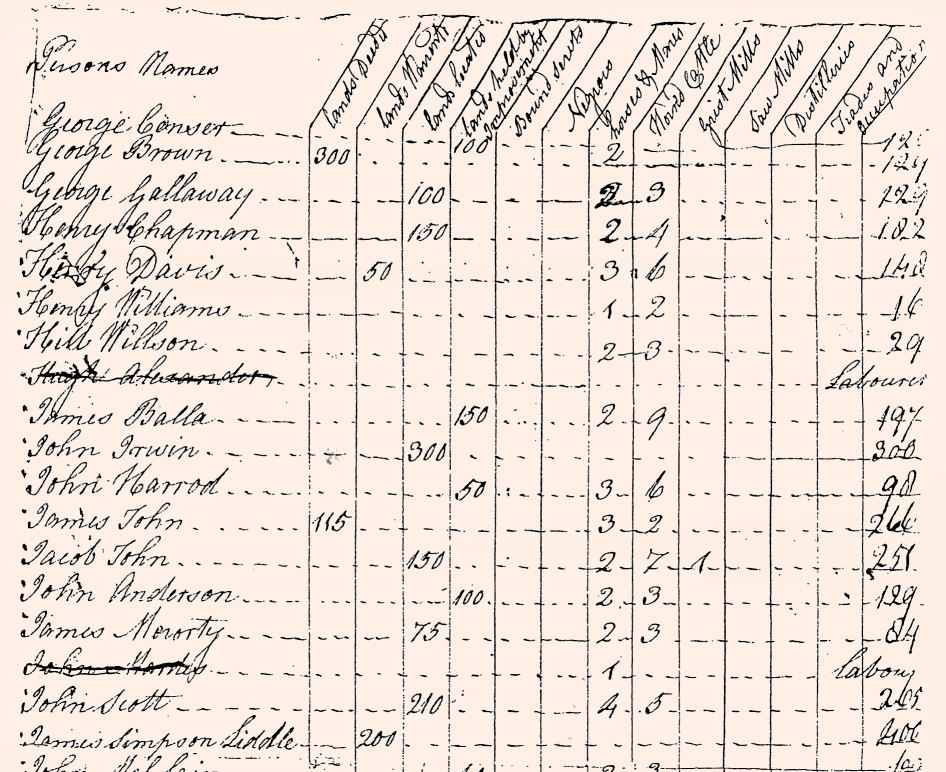 Persons Names Lands Deeded Lands Warrantd Lands located Lands held by Improvement Bound servts Negroes Horses & Mares Horned Cattle Grist Mills Saw Mills Distilleries Trades and occupation
George Conser 100
George Brown 300 2
George Gallaway 100 2 3 129
Henry Chapman 150 2 4 182
Davis 50 3 6
Henry Williams 1 2
Hill Willson 2 3 29
Hugh Alexander Labourer
James Balla 150 2 9 197
John Irwin 300 300
John Harrod 50 3 6 98
James John 115 3 2
Jacob John 150 2 7 1 251
John Anderson 100 2 3 129
James 75 2 3 84
John 1 labour
John Scott 210 4 5
James Simpson Liddle 200
John